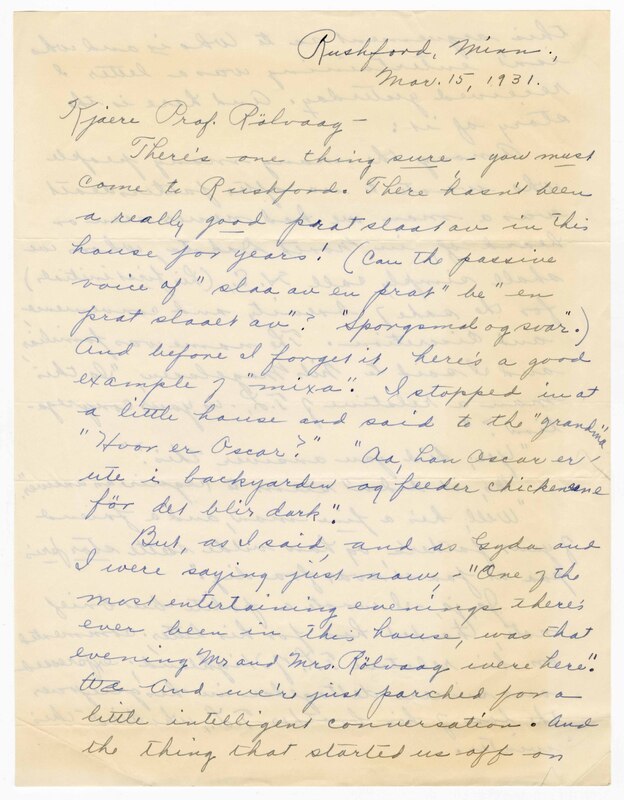 Rushford, Minn.,
Mar. 15, 1931.
Kjaere Prof. Rölvaag –
There's one thing sure – you must
come to Rushford. There hasn't been
a really good prat slaat av in this
house for years! (Can the passive
voice of "slaa av en prat" be "en
prat slaaet av"? "Sporgsmal og svar".)
And before I forget it, here's a good
example of "mixa". I stopped in at
a little house and said to the "grandma",
"Hvor er Oscar?" "Aa, han Oscar er
ute i backyarden og feeder chickenene
för det blir dark".
But, as I said, and as Gyda and
I were saying just now, – "One of the
most entertaining evenings there's
ever been in this house, was that
evening Mr and Mrs. Rölvaag were here".
We And we're just parched for a
little intelligent conversation. And
the thing that started us off on